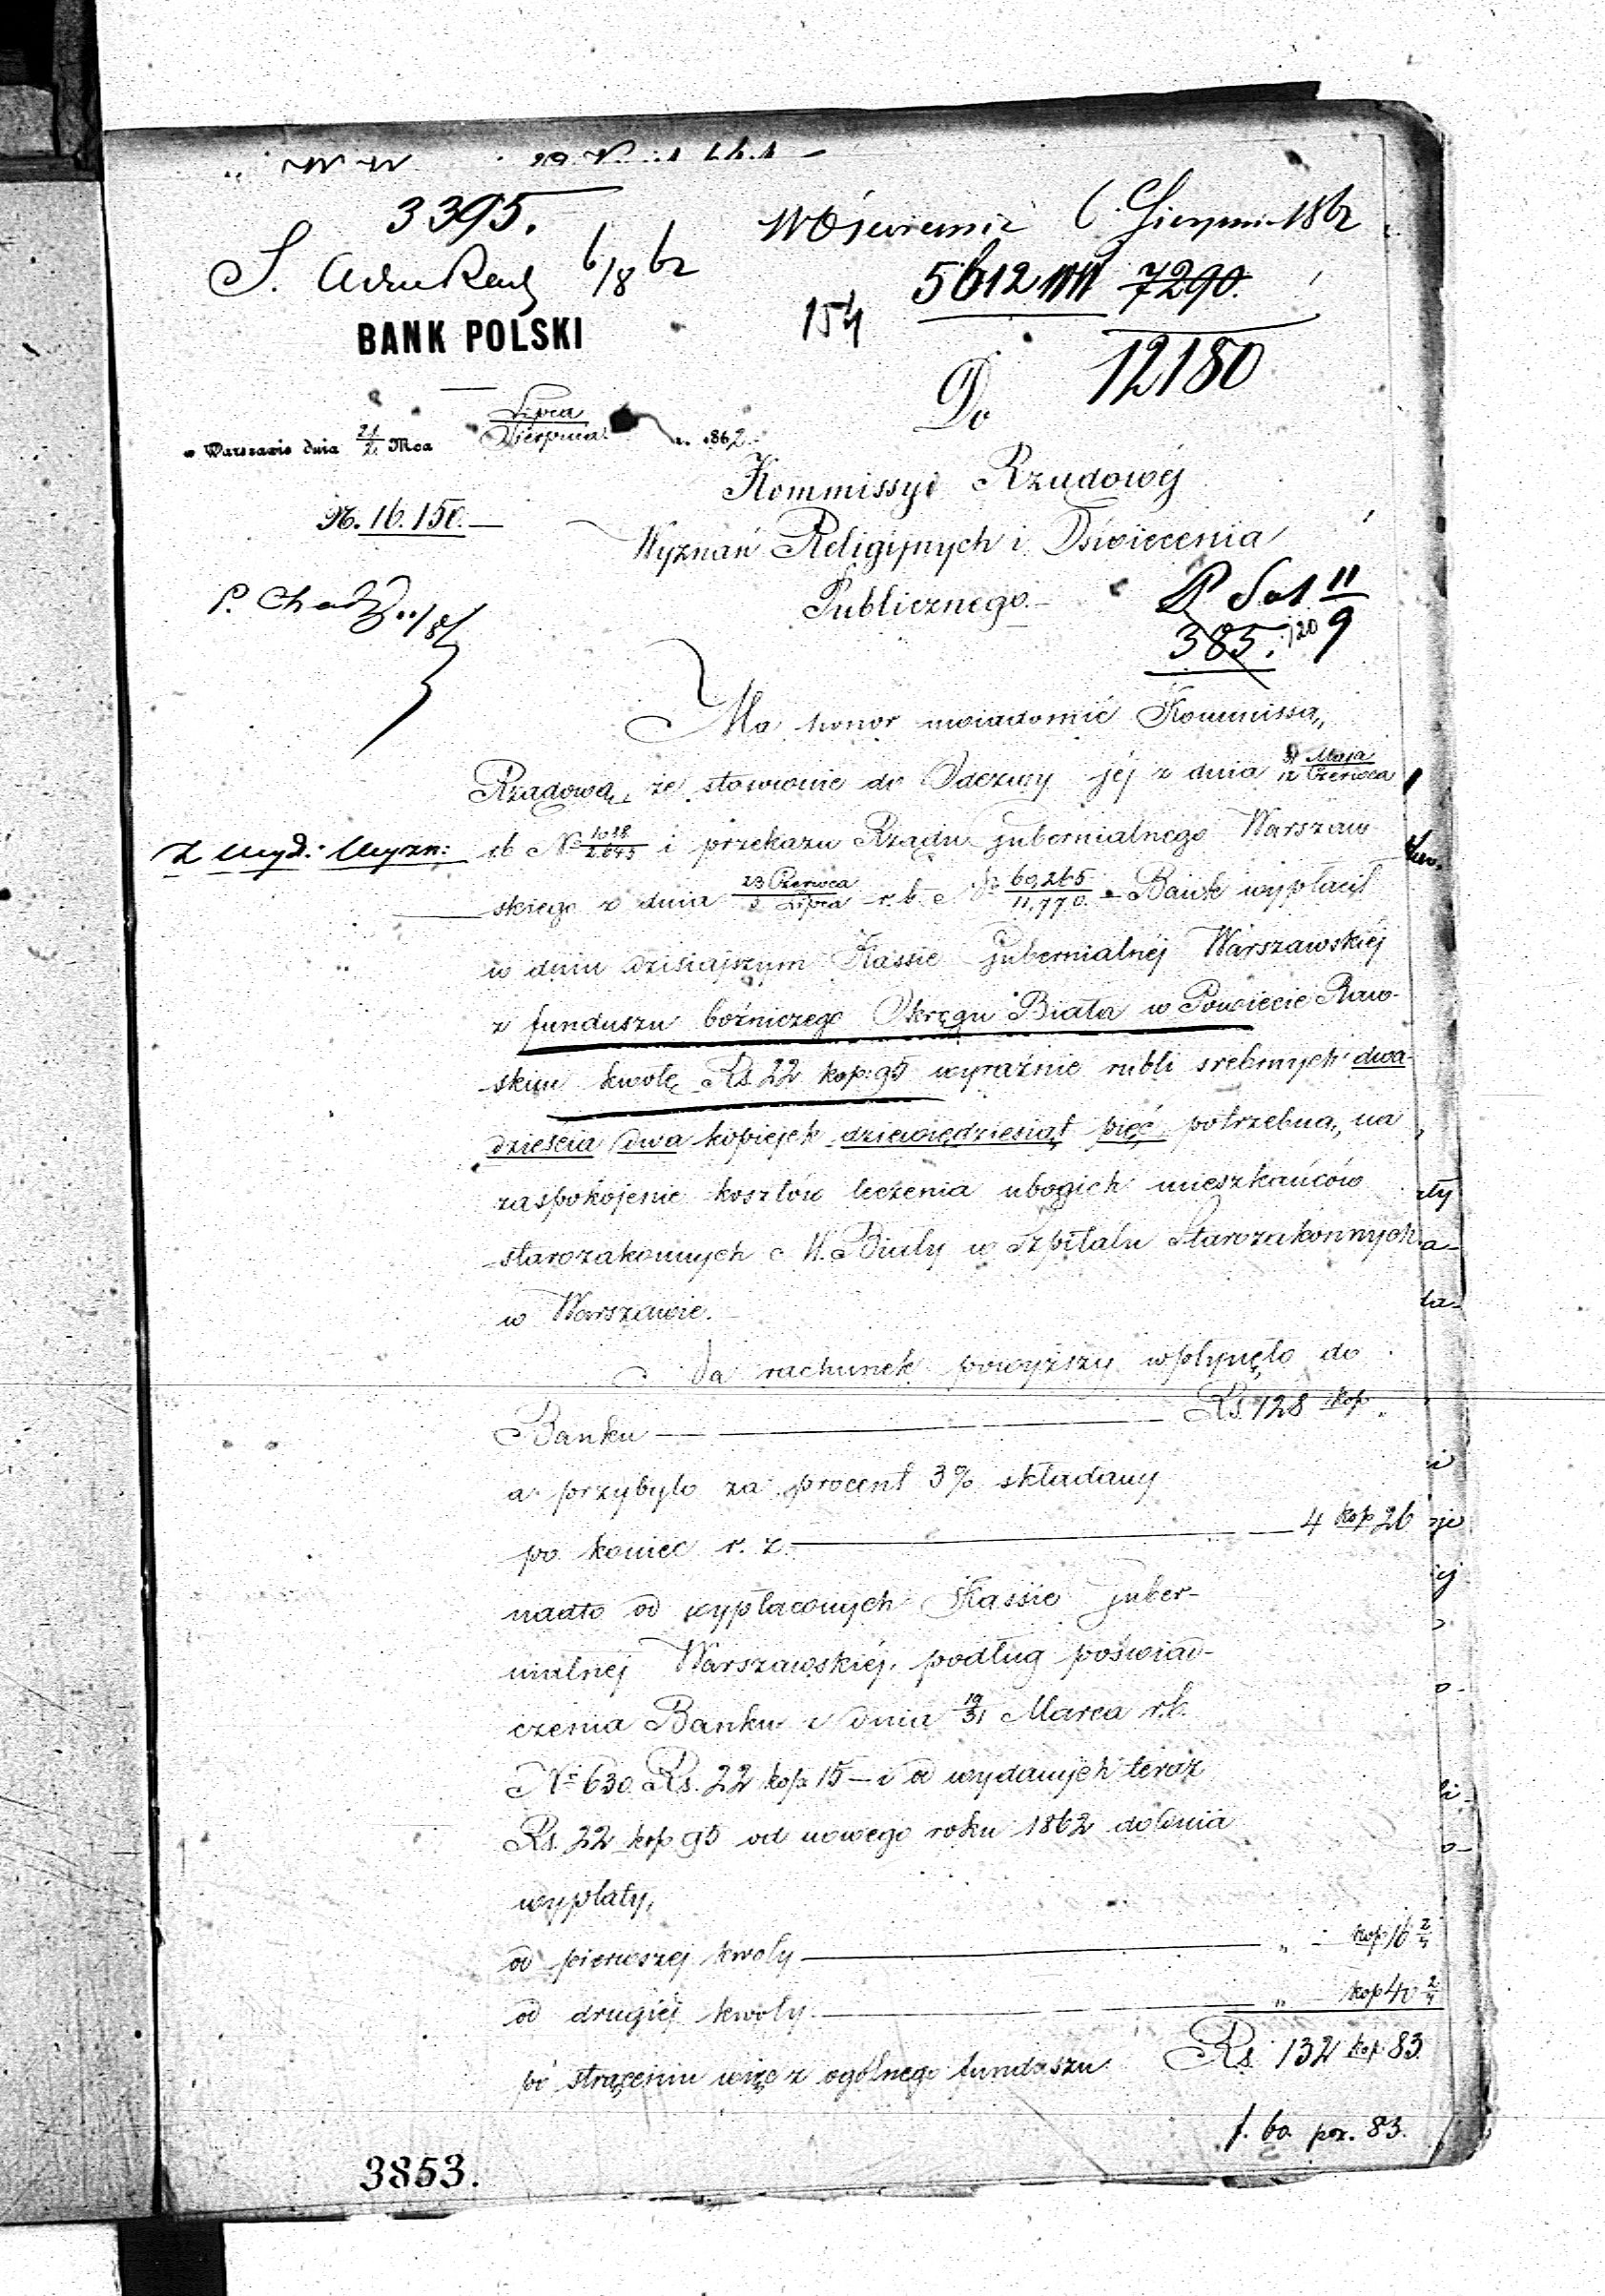 3395.
6 Sierpnia 1862
6/8 62
5612 7290.
154
BANK POLSKI
12180
Do
w Warszawie dnia 21/2 Mca Lipca/Sierpnia r. 1862
Kommissyi Rządowéj
N. 16.150.—
Wyznań Religijnych i Oświecenia
Publicznego.—
11/9
385.
Ma honor uwiadomić Kommissą„
Rządową, że stosownie do Odezwy jéj z dnia 31 Maja/12 Czerwca
Z Wyd: Wyzn:
rb N 1018/2645 i przekazu Rządu Gubernialnego Warszaw
skiego z dnia 23 Czerwca/5 Lipca r.b. N 60,265/11,770.— Bank wypłacił
w dniu dzisiajszym Kassie Gubernialnéj Warszawskiéj
z funduszu bożniczego Okręgu Biała w Powiecie Raw-
skim kwotę Rs 22 kop: 95 wyraźnie rubli srebrnych dwa-
dzieścia dwa kopiejek dziewięćdziesiąt pięć potrzebną, na
zaspokojenie kosztów leczenia ubogich mieszkańców
starozakonnych z M. Biały w Szpitalu Starozakonnych
w Warszawie.
Na rachunek powyższy wpłynęło do
Banku — Rs. 128 kop „
a przybyło za procent 3% składany
po koniec r. z. — 4 kop 26
nadto od wypłaconych Kassie Guber-
nialnej Warszawskiéj, podług poświad-
czenia Banku z dnia 19/31 Marca r.b.
N: 630. Rs. 22 kop 15 — i od wydanych teraz
Rs. 22 kop 95 od nowego roku 1862 do dnia
wypłaty,
od pierwszéj kwoty — „ — kop 16 2/4
od drugiéj kwoty. — „ — kop 40 2/4
po strąceniu więc z ogólnego funduszu Rs. 132 kop 83.
f. 60 poz. 83.
3853.